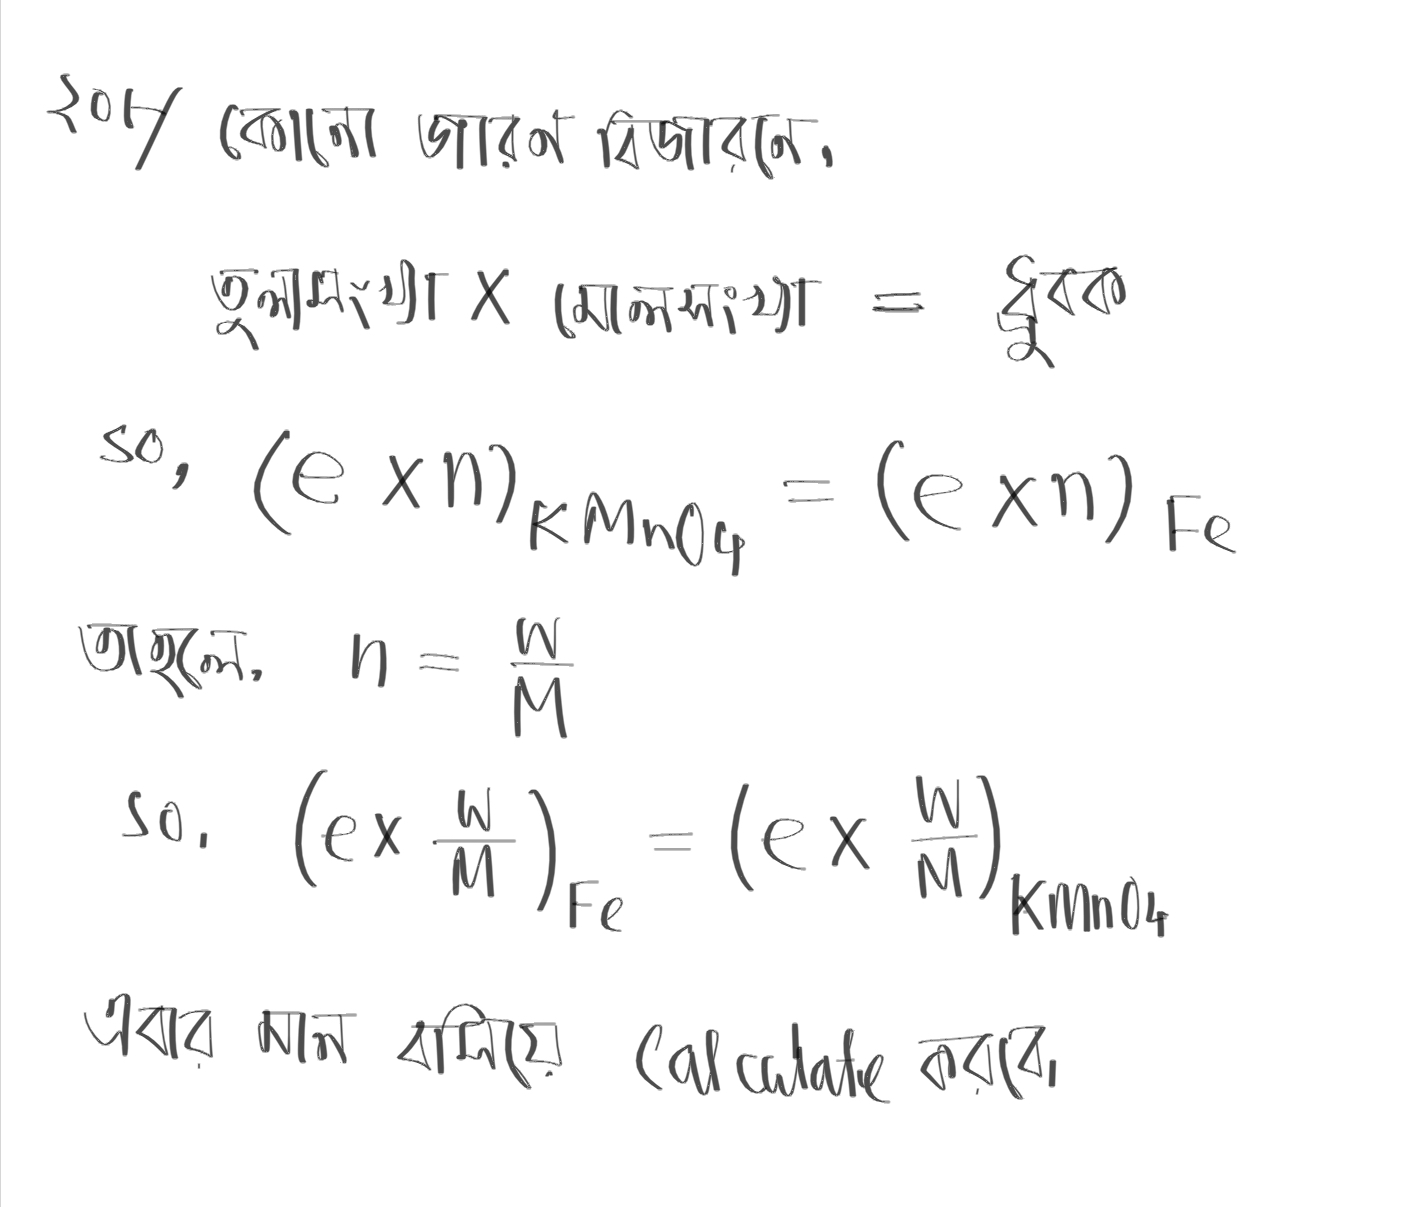 ২০৮/ কোনো জারণ বিজারনে,
তুল্যসংখ্যা X মোলসংখ্যা = ধ্রুবক
so, (e x n) KMnO4 = (e x n) Fe
তাহলে, n = W/M
so, (e x W/M) Fe = (e x W/M) KMnO4
এবার মান বসিয়ে Calculate করবে,